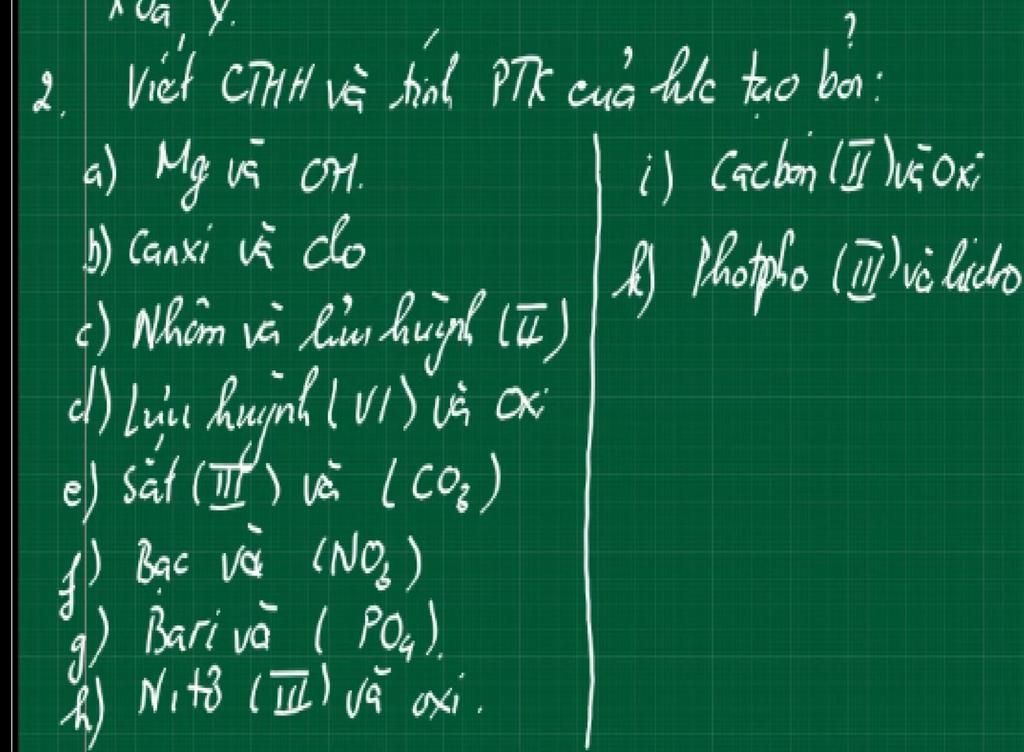 xoá y.
2. Viết CTHH và tính PTK của h/c tạo bởi:
a) Mg và OH.
b) Canxi và clo
c) Nhôm và lưu huỳnh (II)
d) Lưu huỳnh (VI) và oxi
e) Sắt (III) và (CO3)
f) Bạc và (NO3)
g) Bari và (PO4).
h) Nitơ (III) và oxi.
i) Cacbon (II) và Oxi
k) Photpho (III) và hidro